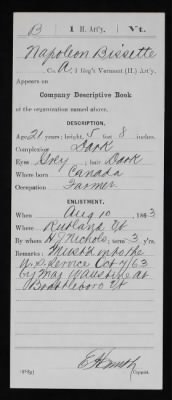 B | 1 H. Art'y. | Vt.
Napoleon Bissette
, Co. A, 1 Reg't Vermont (H.) Art'y.
Appears on
Company Descriptive Book
of the organization named above.
DESCRIPTION.
Age 21 years; height 5 feet 8 inches.
Complexion Dark
Eyes Grey; hair Dark
Where born Canada
Occupation Farmer
ENLISTMENT.
When Aug 10, 1863
Where Rutland Vt
By whom H J Nichols; term 3 y'rs.
Remarks: Must'd into the
U.S. Service Oct 7/63
by Maj W Austine at
Brattleboro Vt
Copyist.